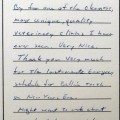 By far one of the cleanest,
most unique, quality
veterinary clinics I have
ever seen. Very Nice.
Thank you very much
for the last minute emergency
schedule for
New Years Eve.
Make sure to ask about